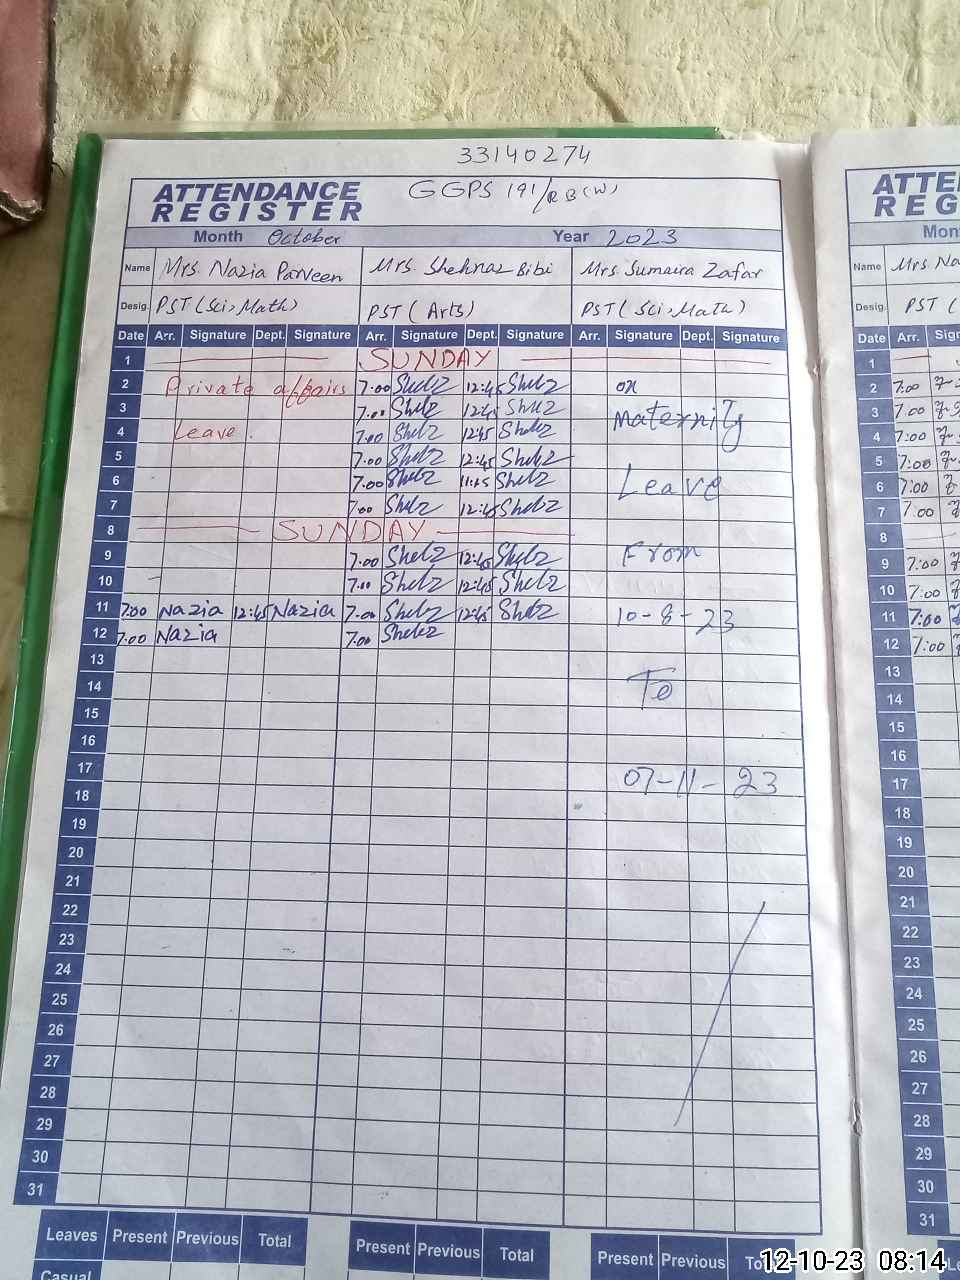 33140274
ATTENDANCE GGPS 191/RB(W)
REGISTER
Month October Year 2023
Name Mrs. Nazia Parveen Mrs. Shehnaz Bibi Mrs. Sumaira Zafar
Desig. PST (Sci, Math) PST (Arts) PST (Sci, Math)
Date Arr. Signature Dept. Signature Arr. Signature Dept. Signature Arr. Signature Dept. Signature
1 SUNDAY
2 Private affairs 7.00 Shehz 12:45 Shehz on
3 7.00 Shehz 12:45 Shehz Maternity
4 Leave. 7.00 Shehz 12:45 Shehz
5 7.00 Shehz 12:45 Shehz
6 7.00 Shehz 11:45 Shehz Leave
7 7.00 Shehz 12:45 Shehz
8 SUNDAY
9 7.00 Shehz 12:45 Shehz From
10 7.00 Shehz 12:45 Shehz
11 7:00 Nazia 12:45 Nazia 7.00 Shehz 12:45 Shehz 10-8-23
12 7:00 Nazia 7.00 Shehz
13
14 To
15
16
17
18 07-11-23
19
20
21
22
23
24
25
26
27
28
29
30
31
Leaves Present Previous Total Present Previous Total Present Previous
Casual
ATTE
REG
Mon
Name Mrs. Na
Desig. PST (
Date Arr. Sign
1
2 7.00
3 7.00
4 7:00
5 7:00
6 7:00
7 7.00
8
9 7:00
10 7:00
11 7:00
12 7:00
13
14
15
16
17
18
19
20
21
22
23
24
25
26
27
28
29
30
31
12-10-23 08:14